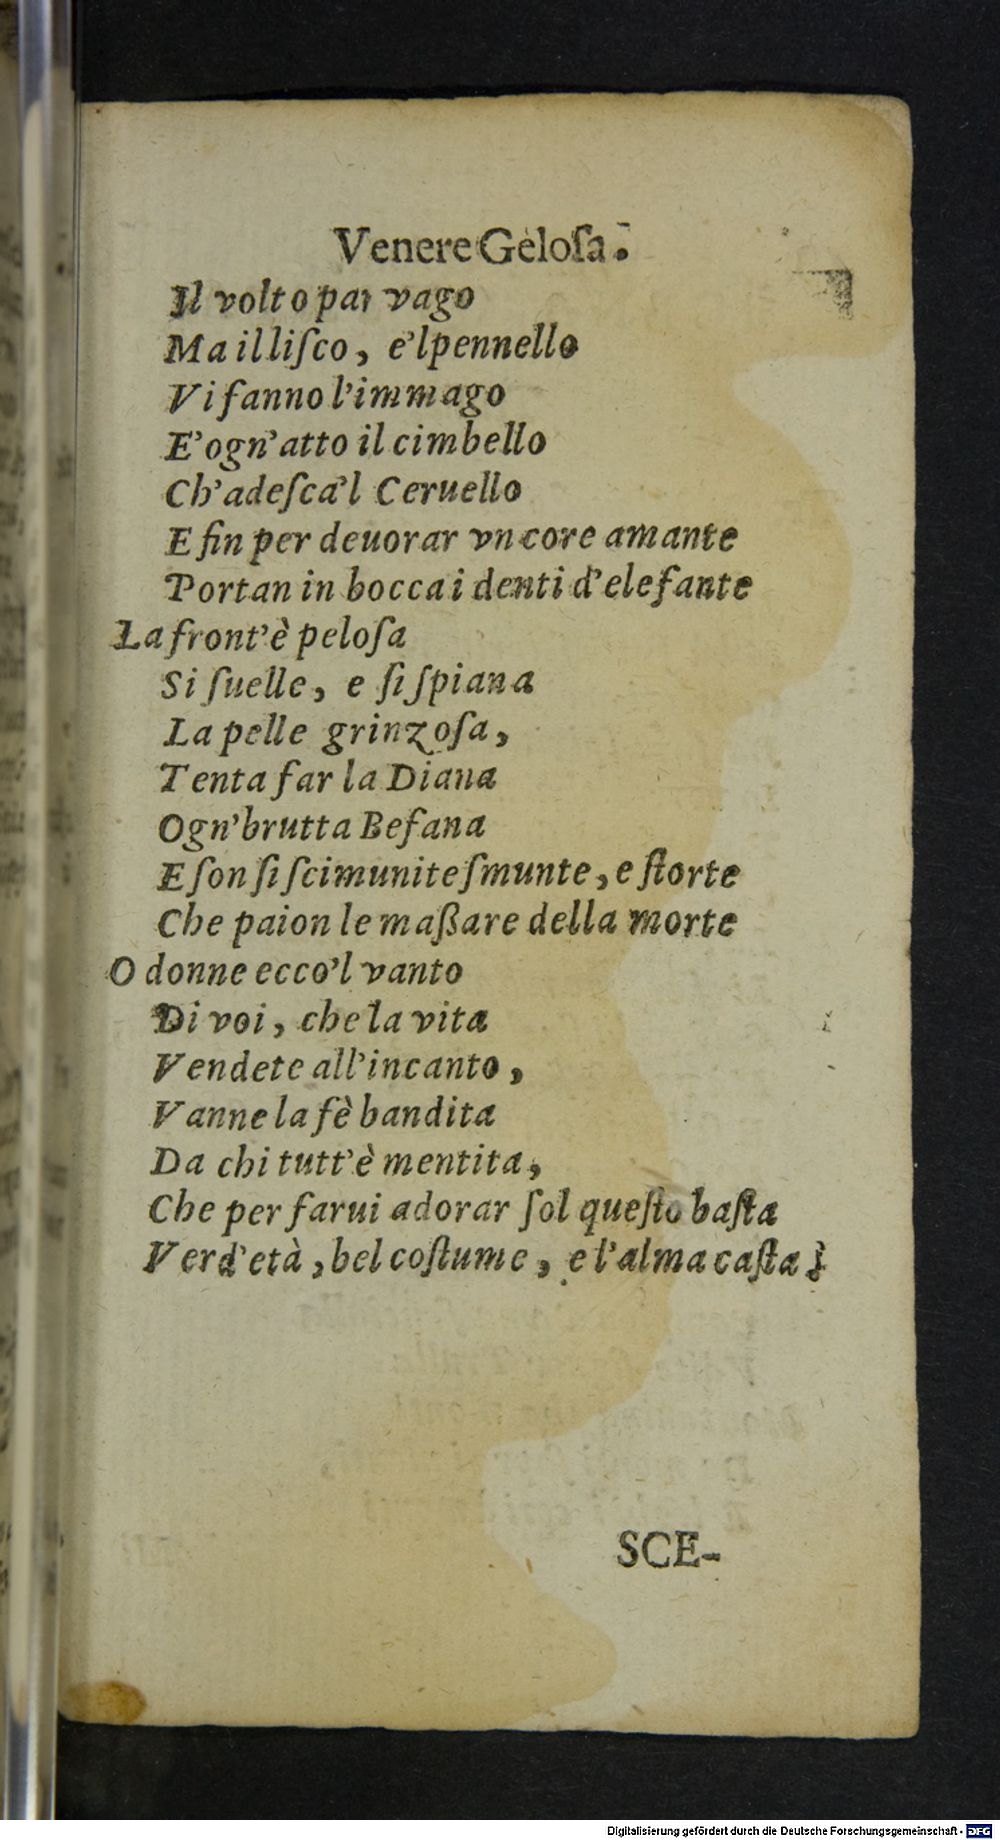 Venere Geloſa.
Il volto par vago
Ma il liſco, e'l pennello
Vi fanno l'immago
E' ogn'atto il cimbello
Ch'adeſca'l Ceruello
E fin per deuorar vn core amante
Portan in bocca i denti d'elefante
La front'è peloſa
Si ſuelle, e ſi ſpiana
La pelle grinzoſa,
Tenta far la Diana
Ogn'brutta Befana
E ſon ſi ſcimunite ſmunte, e ſtorte
Che paion le maßare della morte
O donne ecco'l vanto
Di voi, che la vita
Vendete all'incanto,
Vanne la fè bandita
Da chi tutt'è mentita,
Che per farui adorar ſol queſto baſta
Verd'età, bel coſtume, e l'alma caſta.
SCE-
Digitalisierung gefördert durch die Deutsche Forschungsgemeinschaft - DFG